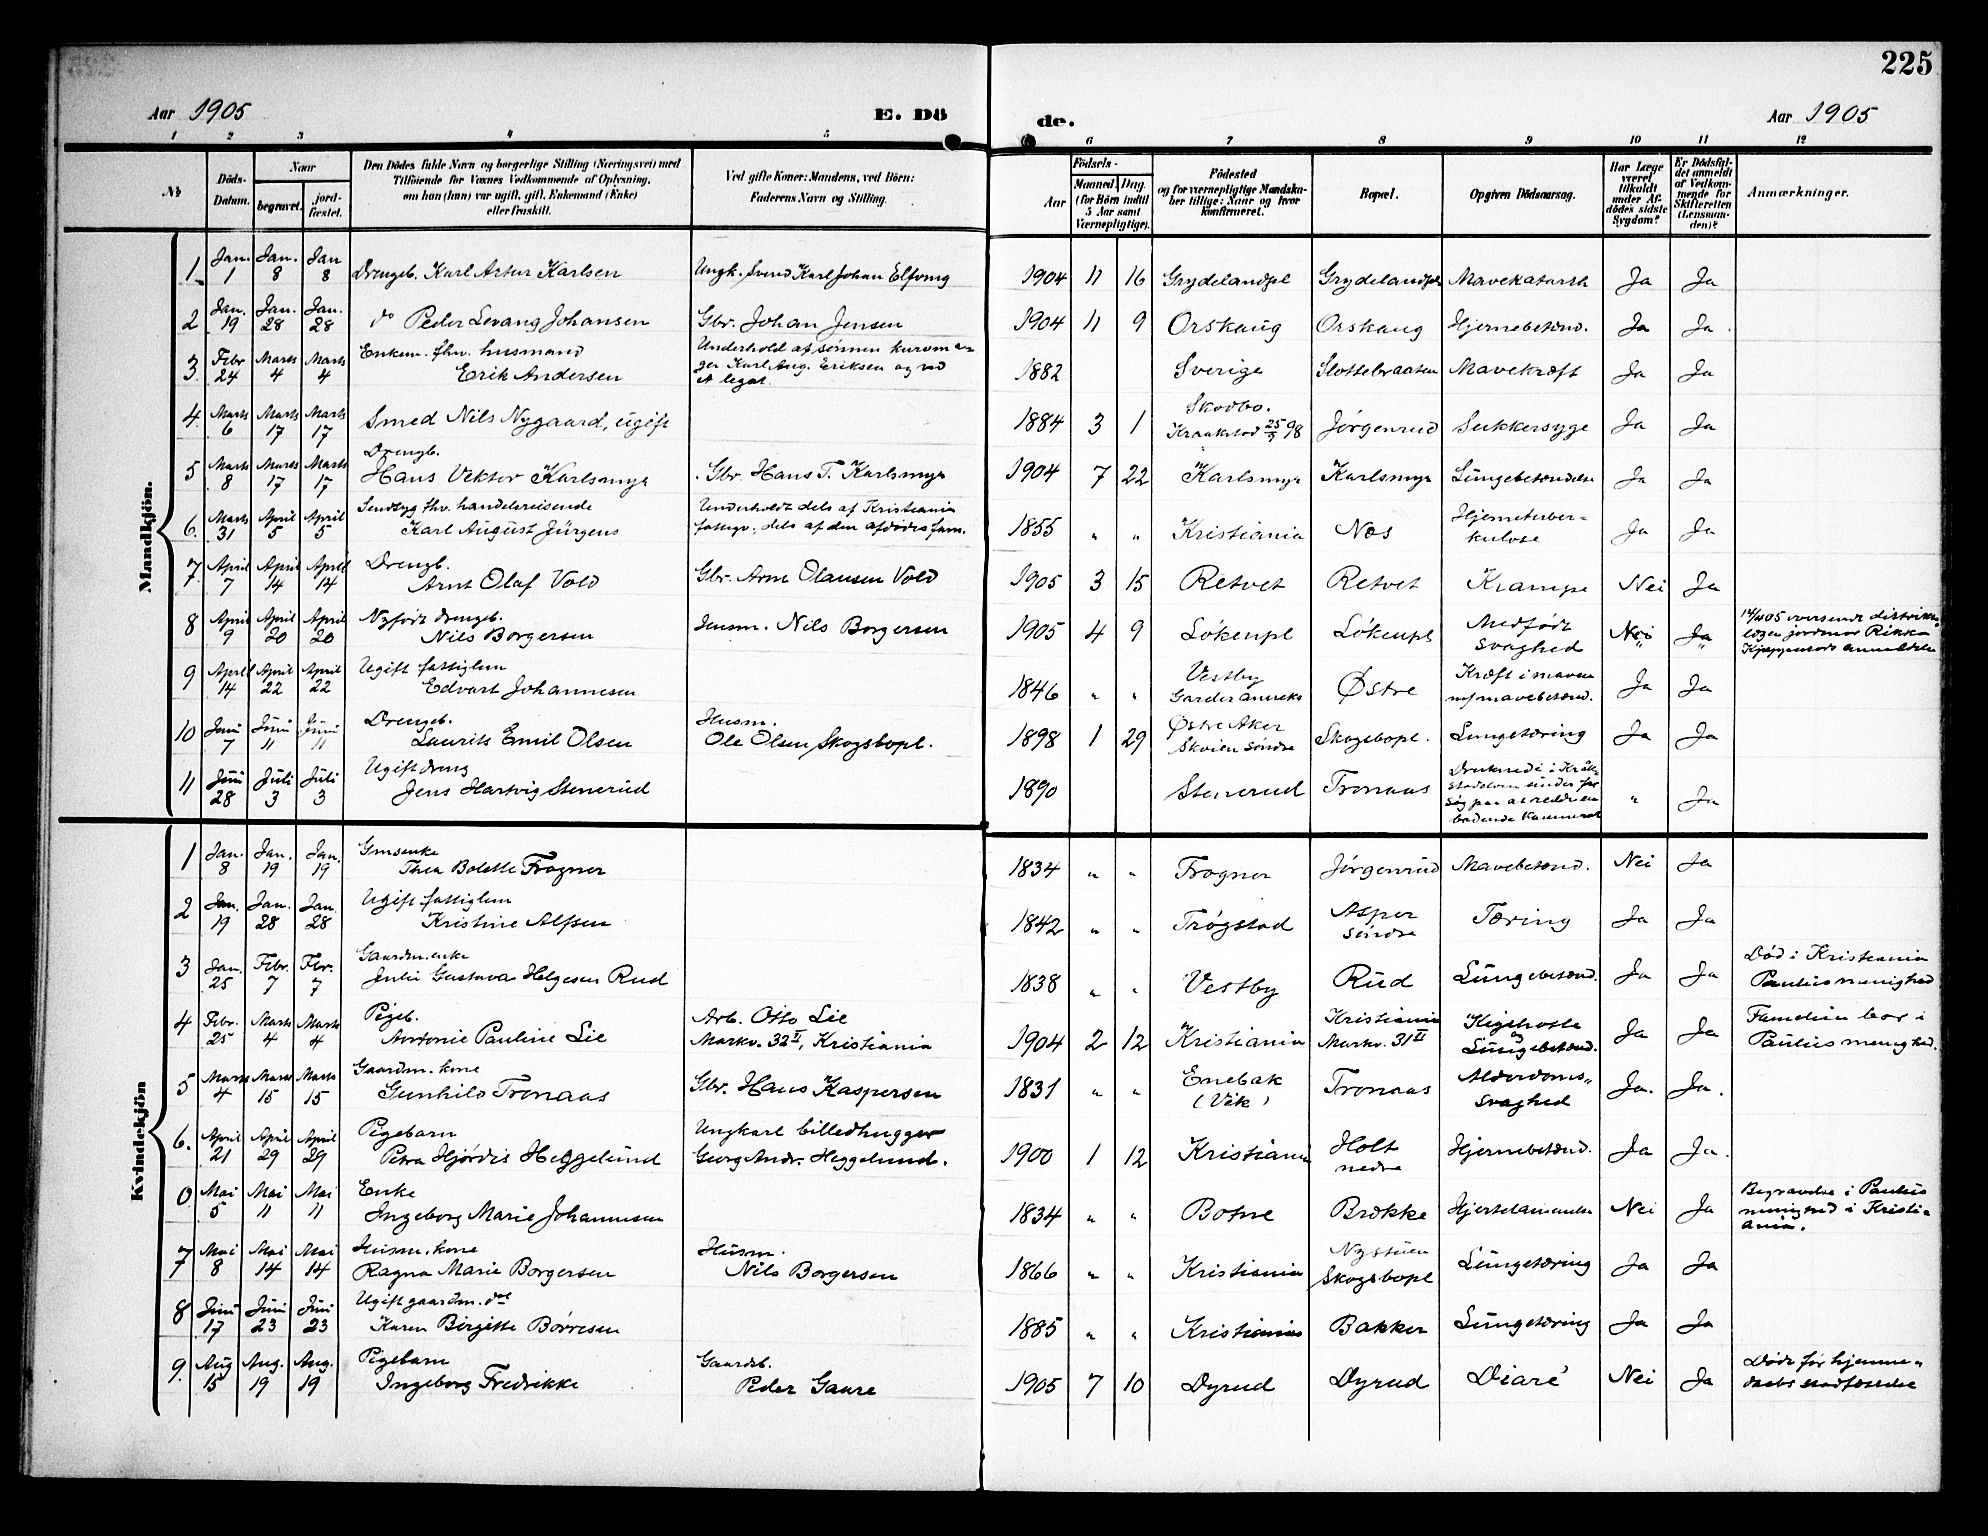 225
Aar 1905
E. Dö de.
Aar 1905
1 2 3 4 5 6 7 8 9 10 11 12
No
Döds-Datum.
Naar
begravet.
jord-fæstet.
Den Dödes fulde Navn og borgerlige Stilling (Næringsvei) med
Tilföiende for Voxnes Vedkommende af Oplysning,
om han (hun) var ugift, gift, Enkemand (Enke)
eller fraskilt.
Ved gifte Koner: Mandens, ved Börn:
Faderens Navn og Stilling.
Födsels-
Aar
Maaned. Dag.
(for Börn indtil
5 Aar samt
Værnepligtige).
Födested
og for værnepligtige Mandska-
ber tillige: Naar og hvor
konfirmeret.
Bopæl.
Opgiven Dödsaarsag.
Har Læge
været
tilkaldt
under Af-
dödes sidste
Sygdom?
Er Dödsfal-
det anmeldt
af Vedkom-
mende for
Skifteretten
(Lensman-
den)?
Anmærkninger.
Mandkjön.
1 Jan. 1 Jan. 8 Jan 8 Drengeb. Karl Artur Karlsen Ungk. Svend Karl Johan Elfving 1904 11 16 Grydelandpl Grydelandpl Mavekatarrh Ja Ja
2 Jan. 19 Jan. 28 Jan. 28 do Peder Levang Johansen Gbr. Johan Jensen 1904 11 9 Orskaug Orskaug Hjernebetænd. Ja Ja.
3. Febr 24 Marts 4 Marts 4 Enkem. fhv. husmand
Erik Andersen
Underhold af sønnen kurvma-
ger Karl Aug. Eriksen og ved
et legat.
1882 Sverige Slottebraaten Mavekræft Ja Ja
4. Marts 6 Marts 17 Marts 17 Smed Nils Nygaard, ugift 1884 3 1 Skodbo.
Kraakstad 25/9 98 Jørgenrud Sukkersyge Ja Ja
5 Marts 8 Marts 17 Marts 17 Drengb.
Hans Vektor Karlsmyr Gbr. Hans T. Karlsmyr 1904 7 22 Karlsmyr Karlsmyr Lungebetændelse Ja Ja
6. Marts 31 April 5 April 5 Sindsyg fhv. handelsreisende
Karl August Jürgens
Underholdt dels af Kristiania
fattigv., dels af den afdødes fam.
1855 " " Kristiania Nes Hjernetuber-
kulose Ja Ja
7. April 7 April 14 April 14 Drengb.
Arnt Olaf Vold Gbr. Arne Olausen Vold 1905 3 15 Retvet Retvet Krampe Nei Ja
8 April 9 April 20 April 20 Nyfødt drengeb.
Nils Borgersen Husm. Nils Borgersen 1905 4 9 Løkenpl Løkenpl Medfødt
svaghed Nei Ja
14/4 05 oversendt distrikts-
lægen jordmor Rikka
anmeldelse
9 April 14 April 22 April 22 Ugift fattiglem
Edvart Johannesen 1846 " " Vestby
Garder anneks Østre Kræft i maven
m/mavebetænd. Ja Ja
10 Juni 7 Juni 11 Juni 11 Drengeb.
Laurits Emil Olsen Husm.
Ole Olsen Skogsbopl. 1898 1 29 Østre Aker
Skøien søndre Skogsbopl. Lungetæring Ja Ja
11 Juni 28 Juli 3 Juli 3 Ugift dreng
Jens Hartvig Stenerud 1890 Stenerud Tronaas Druknede i Kråk-
stadelven under for-
søg paa at redde en
badende kammerat " Ja
Kvindekjön
1 Jan. 8 Jan. 19 Jan. 19 Gmsenke
Thea Bolette Frogner 1834 " " Frogner Jørgenrud Mavebetænd. Nei Ja
2 Jan. 19 Jan. 28 Jan. 28 Ugift fattiglem
Kristine Alfsen 1842 " " Trøgstad Asper
søndre Tæring Ja Ja
3 Jan. 25 Febr. 7 Febr. 7 Gaardm. enke
Julie Gustava Helgesen Rud 1838 " " Vestby Rud Lungebetænd. Ja Ja Død i Kristiania
Paulus menighed
4 Febr. 25 Marts 4 Marts 4 Pigeb.
Antonie Pauline Lie Arb. Otto Lie
Markv. 32 II, Kristiania 1904 2 12 Kristiania Kristiania
Markv. 31 II Kighoste
og
Lungebetænd. Ja Ja Familien bor i
Paulus menighed.
5 Marts 4 Marts 15 Marts 15 Gaardm. kone
Gunhild Tronaas Gbr. Hans Kaspersen 1831 " " Enebak
(Vik) Tronaas Alderdoms-
svaghed Ja. Ja.
6. April 21 April 29 April 29 Pigebarn
Petra Hjørdis Heggelund Ungkarl billedhugger
Georg Andr. Heggelund. 1900 1 12 Kristiania Holt
nedre Hjernebetænd. Ja Ja.
0 Mai 5 Mai 11 Mai 11 Enke
Ingeborg Marie Johannesen 1834 " " Botne Brække Nei Ja Begravelse i Paulus
menighed i Kristi-
ania.
7 Mai 8 Mai 14 Mai 14 Husm. kone
Ragna Marie Borgersen Husm.
Nils Borgersen 1866 " " Kristiania Nystuen
Skogsbopl Lungetæring Ja Ja
8 Juni 17 Juni 23 Juni 23 Ugift gaardm. dat
Karen Birgitte Børresen 1885 " " Kristiania Bakker Lungetæring Ja Ja
9. Aug 15 Aug. 19 Aug. 19 Pigebarn
Ingeborg Fredrikke Gaardb.
Peder Gaare 1905 7 10 Dyrud Dyrud Diaré Nei Ja Døde før hjemme-
daabs stadfæstelse